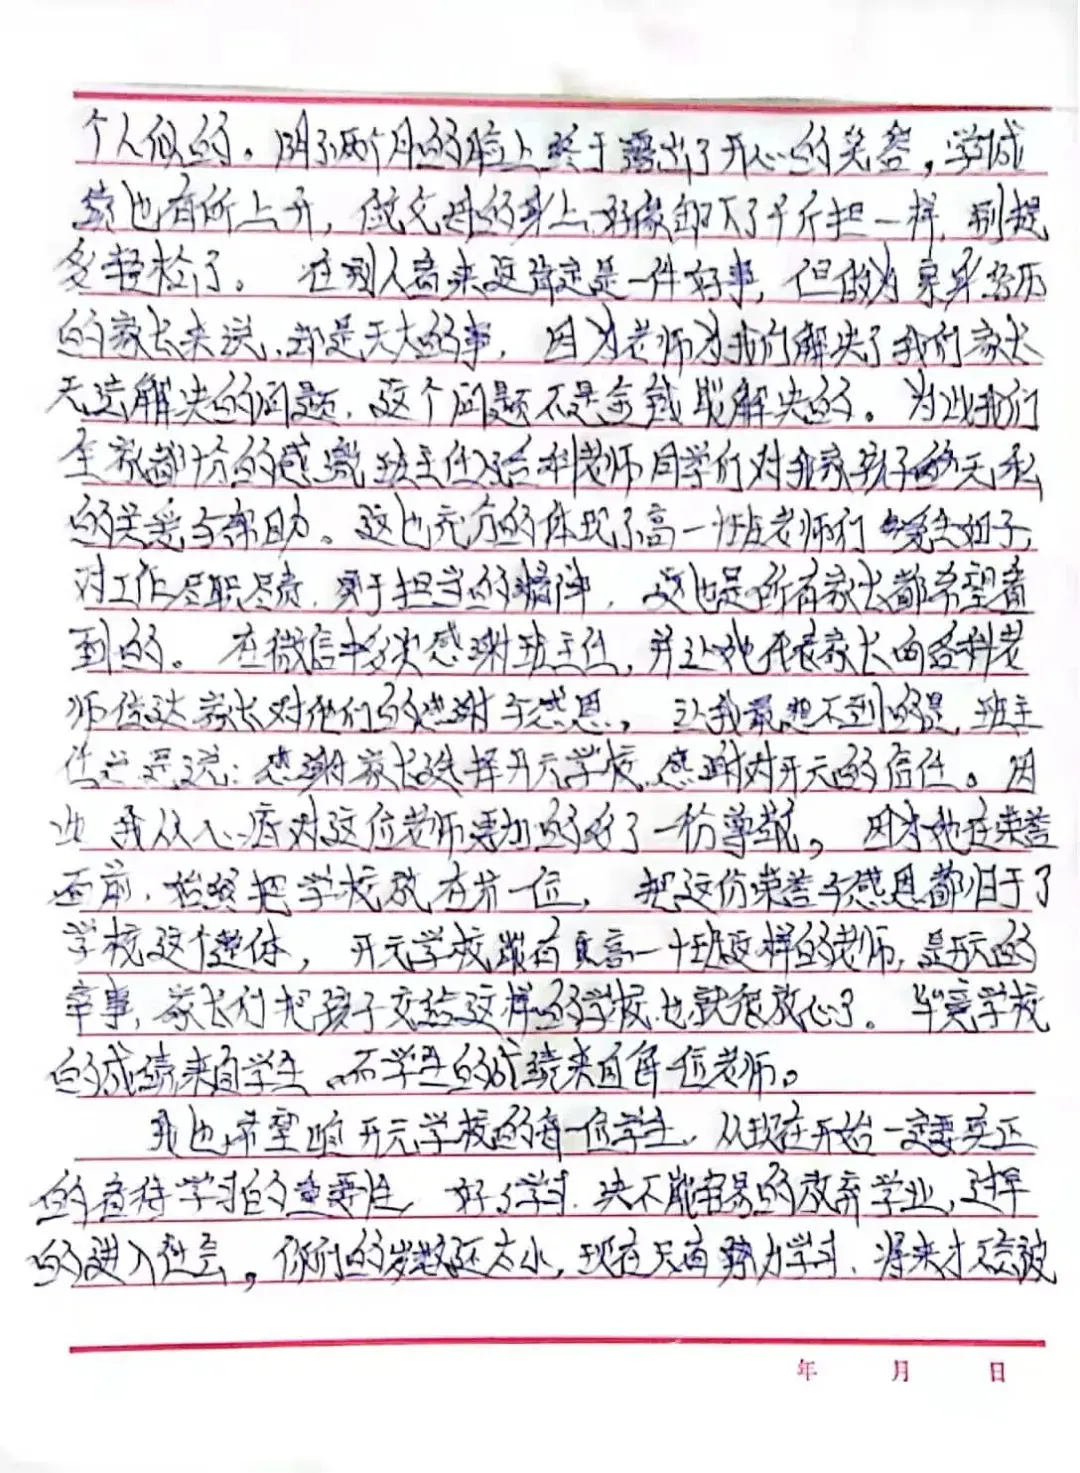 个人似的。阴了两个月的脸上终于露出了开心的笑容，学成
绩也有所上升，做父母的身上好像卸下了千斤担一样，别提
多轻松了。在别人看来这肯定是一件好事，但做为亲身经历
的家长来说，却是天大的事，因为老师为我们解决了我们家长
无法解决的问题，这个问题不是金钱能解决的。为此我们
全家都十分的感激班主任及各科老师同学们对我家孩子的无私
的关爱与帮助。这也充分的体现了高一十班老师们爱生如子，
对工作尽职尽责，勇于担当的精神，这也是所有家长都希望看
到的。在微信中多次感谢班主任，并让她代表家长向各科老
师传达家长对他们的感谢与感恩，让我最想不到的是，班主
任总是说：感谢家长选择开元学校，感谢对开元的信任。因
此我从心底对这位老师更加的多了一份尊敬，因为她在荣誉
面前，始终把学校放在第一位，把这份荣誉与感恩都归于了
学校这个整体，开元学校拥有高一十班这样的老师，是开元的
幸事，家长们把孩子交给这样的学校也就很放心了。毕竟学校
的成绩来自学生，而学生的成绩来自每一位老师。
我也希望咱开元学校的每一位学生，从现在开始一定要真正
的看待学习的重要性，好好学习，决不能容易的放弃学业，过早
的进入社会，你们的岁数还太小，现在只有努力学习，将来才不会被
年 月 日